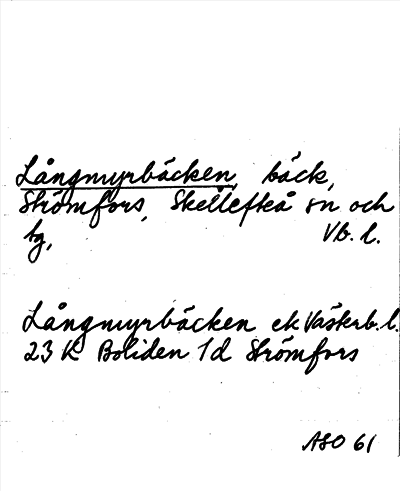 Långmyrbäcken, bäck,
Strömfors, Skellefteå sn och
tg, Vb. l.
Långmyrbäcken ek Västerb. l.
23 K Boliden 1d Strömfors
ASO 61